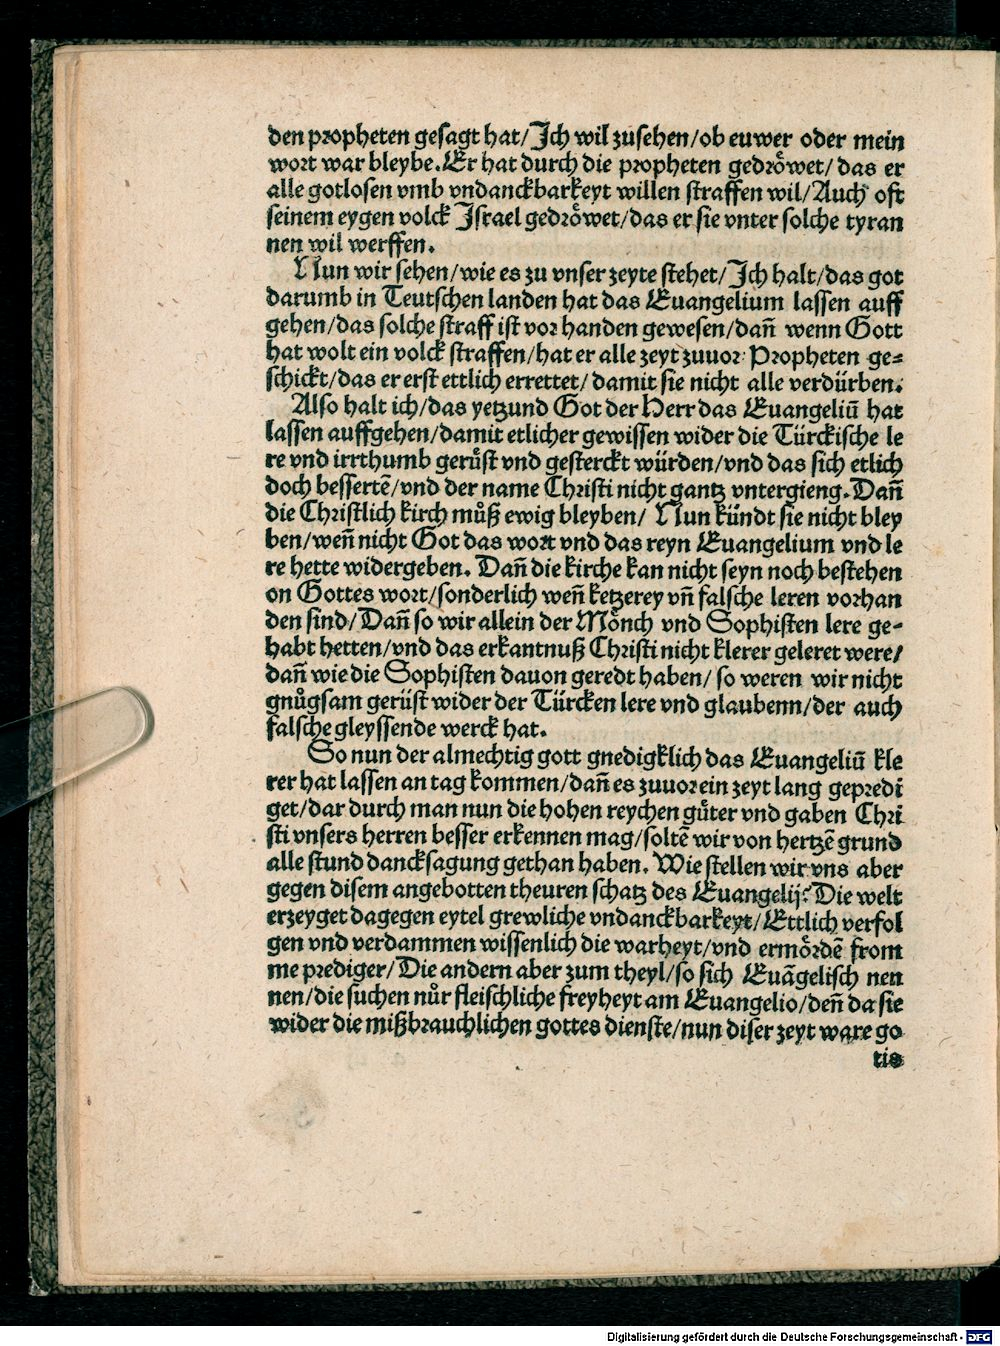 den propheten gesagt hat/Ich wil zusehen/ob euwer oder mein
wort war bleybe. Er hat durch die propheten gedröwet/das er
alle gotlosen vmb vndanckbarkeyt willen straffen wil/Auch oft
seinem eygen volck Israel gedröwet/das er sie vnter solche tyran
nen wil werffen.
Nun wir sehen/wie es zu vnser zeyte stehet/Ich halt/das got
darumb in Teutschen landen hat das Euangelium lassen auff
gehen/das solche straff ist vor handen gewesen/dañ wenn Gott
hat wolt ein volck straffen/hat er alle zeyt zuuor Propheten ge=
schickt/das er erst ettlich errettet/damit sie nicht alle verdürben.
Also halt ich/das yetzund Got der Herr das Euangeliū hat
lassen auffgehen/damit etlicher gewissen wider die Türckische le
re vnd irrthumb gerůst vnd gesterckt würden/vnd das sich etlich
doch bessertē/vnd der name Christi nicht gantz vntergieng. Dañ
die Christlich kirch můß ewig bleyben/ Nun kündt sie nicht bley
ben/weñ nicht Got das wort vnd das reyn Euangelium vnd le
re hette widergeben. Dañ die kirche kan nicht seyn noch bestehen
on Gottes wort/sonderlich weñ ketzerey vñ falsche leren vorhan
den sind/Dañ so wir allein der Mönch vnd Sophisten lere ge-
habt hetten/vnd das erkantnuß Christi nicht klerer geleret were/
dañ wie die Sophisten dauon geredt haben/ so weren wir nicht
gnůgsam gerüst wider der Türcken lere vnd glaubenn/der auch
falsche gleyssende werck hat.
So nun der almechtig gott gnedigklich das Euangeliū kle
rer hat lassen an tag kommen/dañ es zuuor ein zeyt lang gepredi
get/dar durch man nun die hohen reychen gůter vnd gaben Chri
sti vnsers herren besser erkennen mag/soltē wir von hertzē grund
alle stund dancksagung gethan haben. Wie stellen wir vns aber
gegen disem angebotten theuren schatz des Euangelij? Die welt
erzeyget dagegen eytel grewliche vndanckbarkeyt/Ettlich verfol
gen vnd verdammen wissenlich die warheyt/vnd ermördē from
me prediger/Die andern aber zum theyl/so sich Euāgelisch nen
nen/die suchen nůr fleischliche freyheyt am Euangelio/deñ da sie
wider die mißbrauchlichen gottes dienste/nun diser zeyt ware go
tis
Digitalisierung gefördert durch die Deutsche Forschungsgemeinschaft - DFG